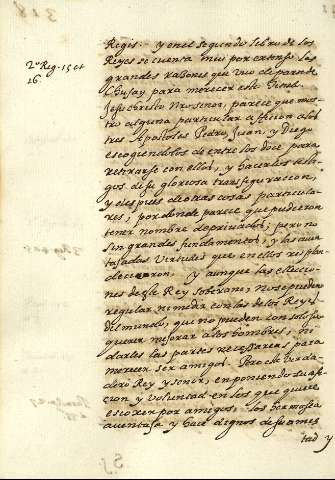 2º Reg. 15 et
16.
Regis. y en el segundo libro de los
Reyes se cuenta muy por extenso las
grandes razones que uvo de parte de
Chusay para merecer este
Jesu Christo Nro Senor, parece que mos
tro alguna particular aficion a los
tres Apostoles Pedro, Juan, y Diego
escogiendolos de entre los doce para
retirarse con ellos, y hacerlos testi
gos de su gloriosa transfiguracion,
y despues de otras cosas particula
res; por donde parece que pudieron
tener nombre de privados; pero no
sin grandes fundamentos, y las aven
tajadas Virtudes que en ellos resplan
decieron. y aunque las eleccio
nes de este Rey soberano, no se pueden
regular ni medir con las de los Reyes
del mundo, que no pueden con solo su
querer mejorar a los hombres, ni
darles las partes necessarias para
merecer ser amigos. Pero este verda
dero Rey y senor, en poniendo su afi
cion y voluntad en los que quiere
escoxer por amigos, los hermosea
aventaja y hace dignos de su amis
tad y